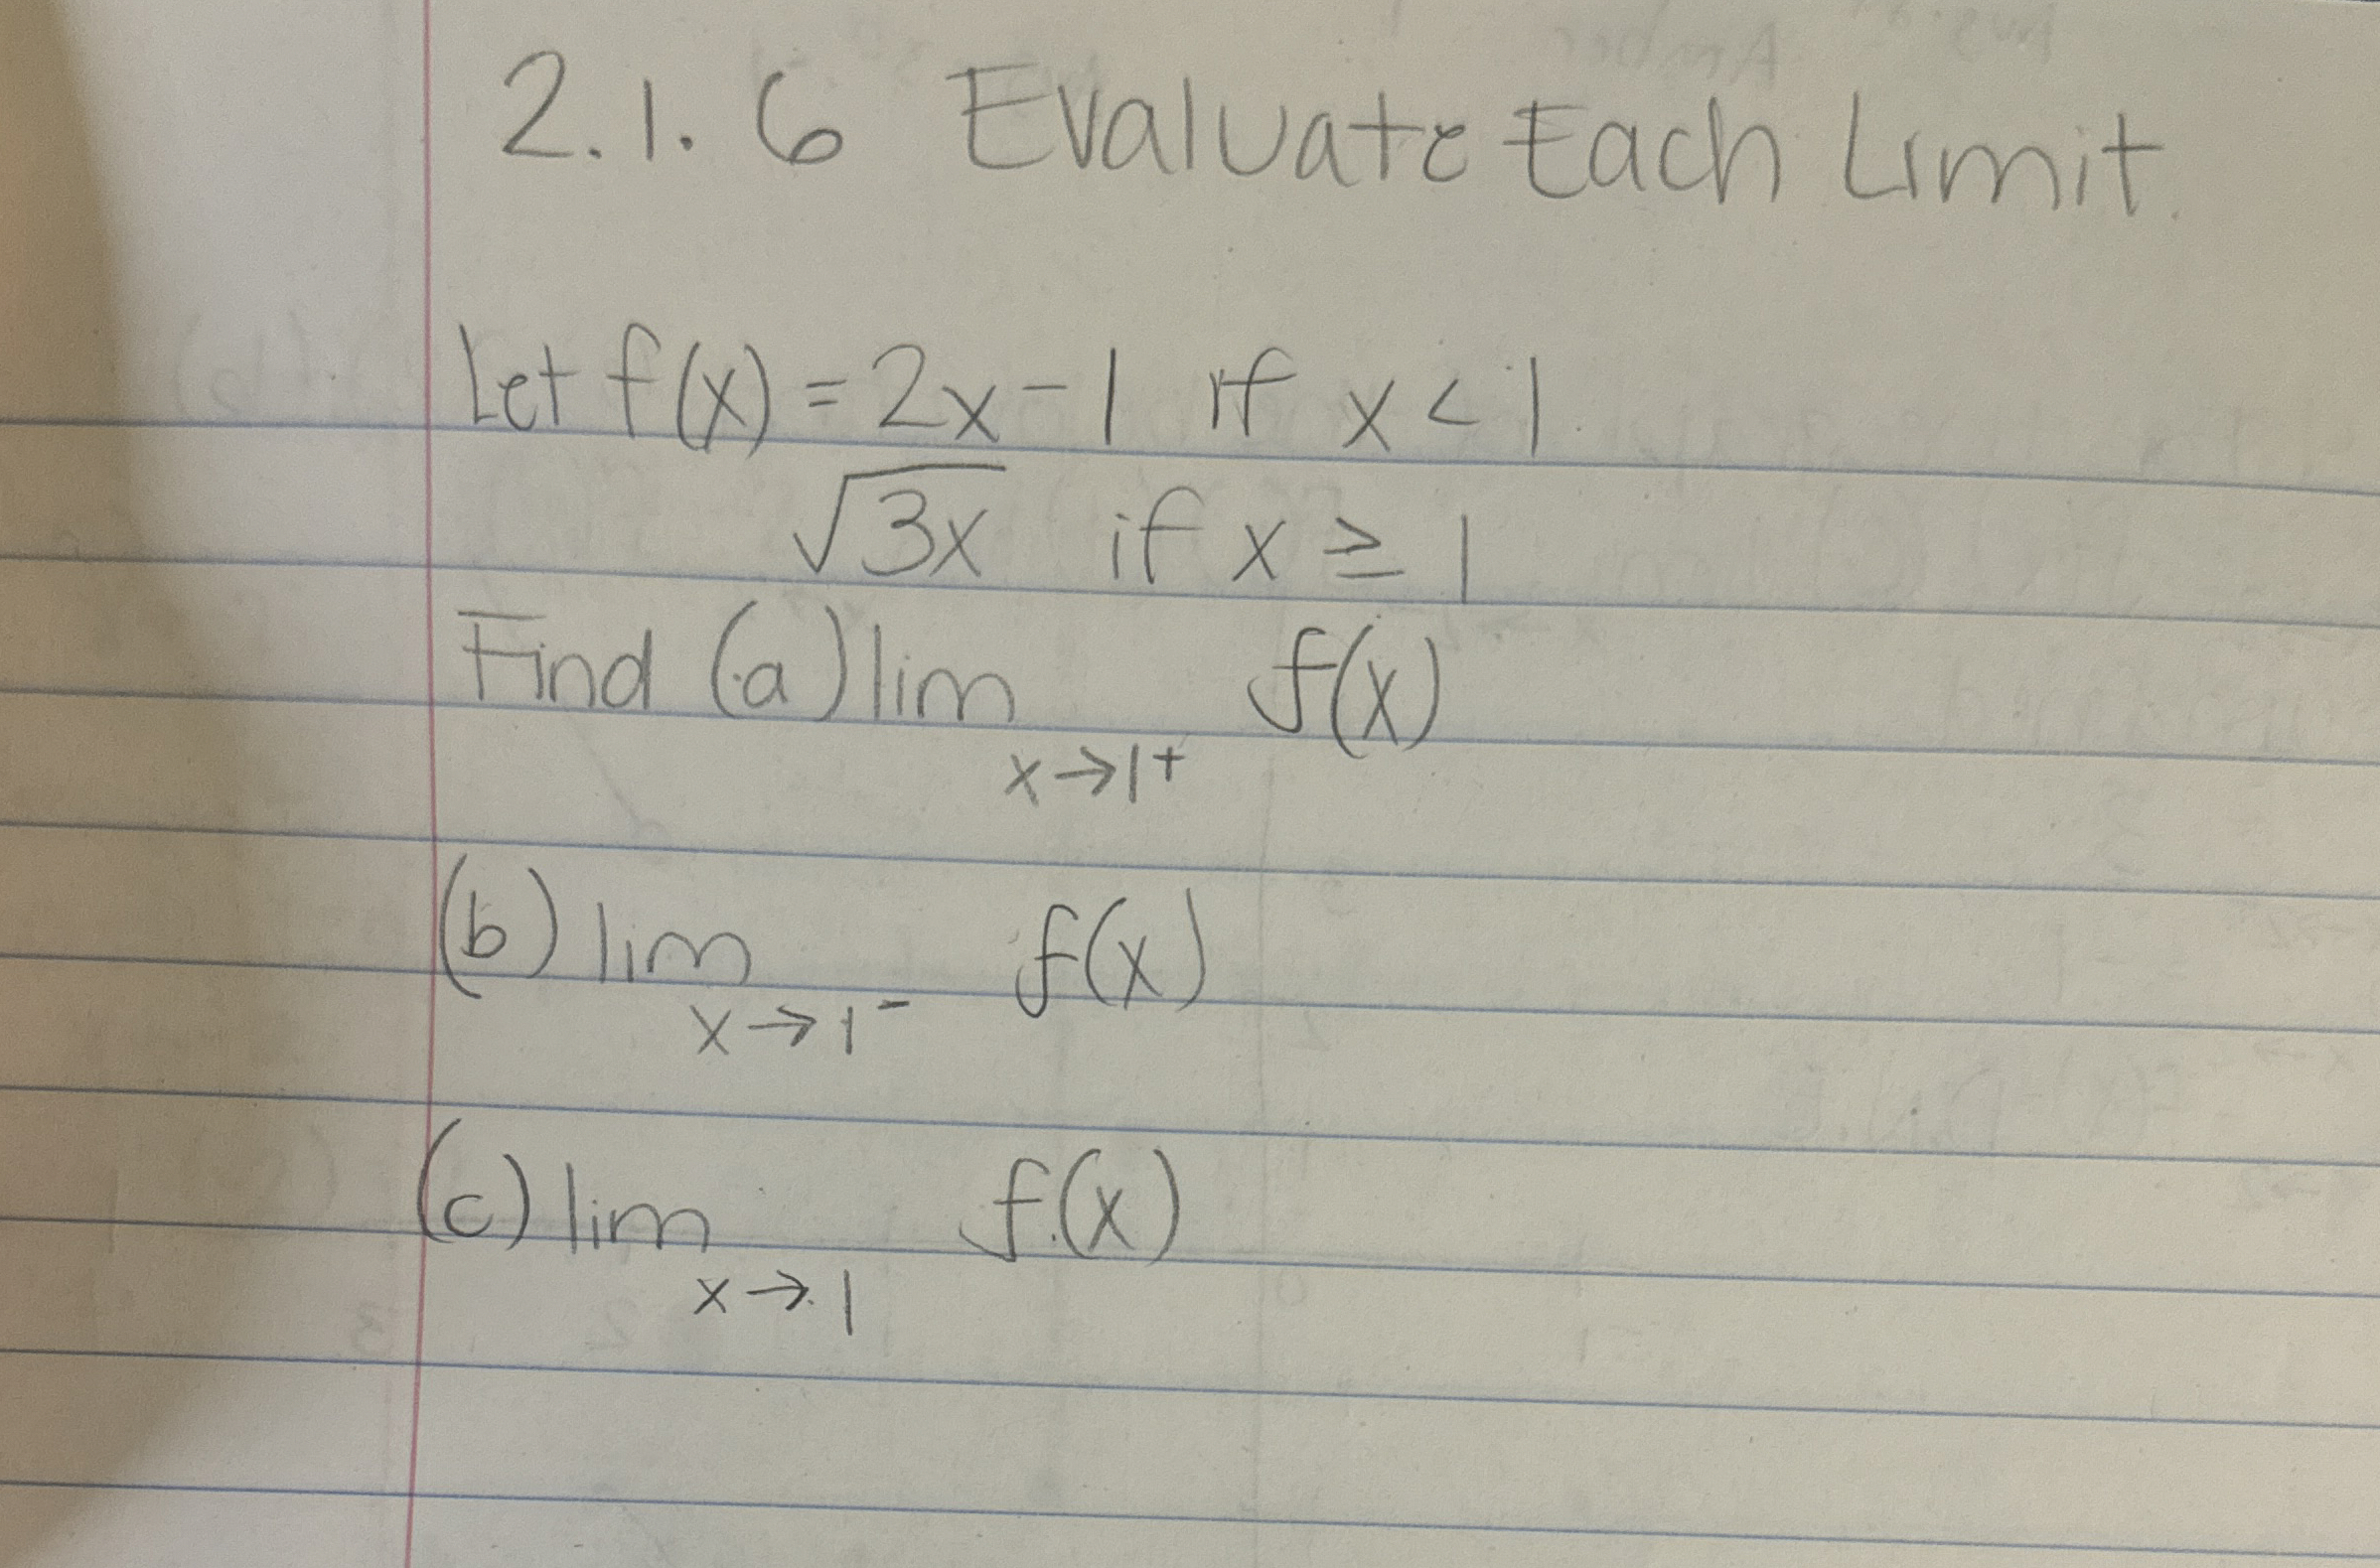 2.1.6 Evaluate Each Limit.
Let f(x) = 2x - 1 if x < 1
√3x if x ≥ 1
Find (a) lim f(x)
x→1⁺
(b) lim f(x)
x→1⁻
(c) lim f(x)
x→1